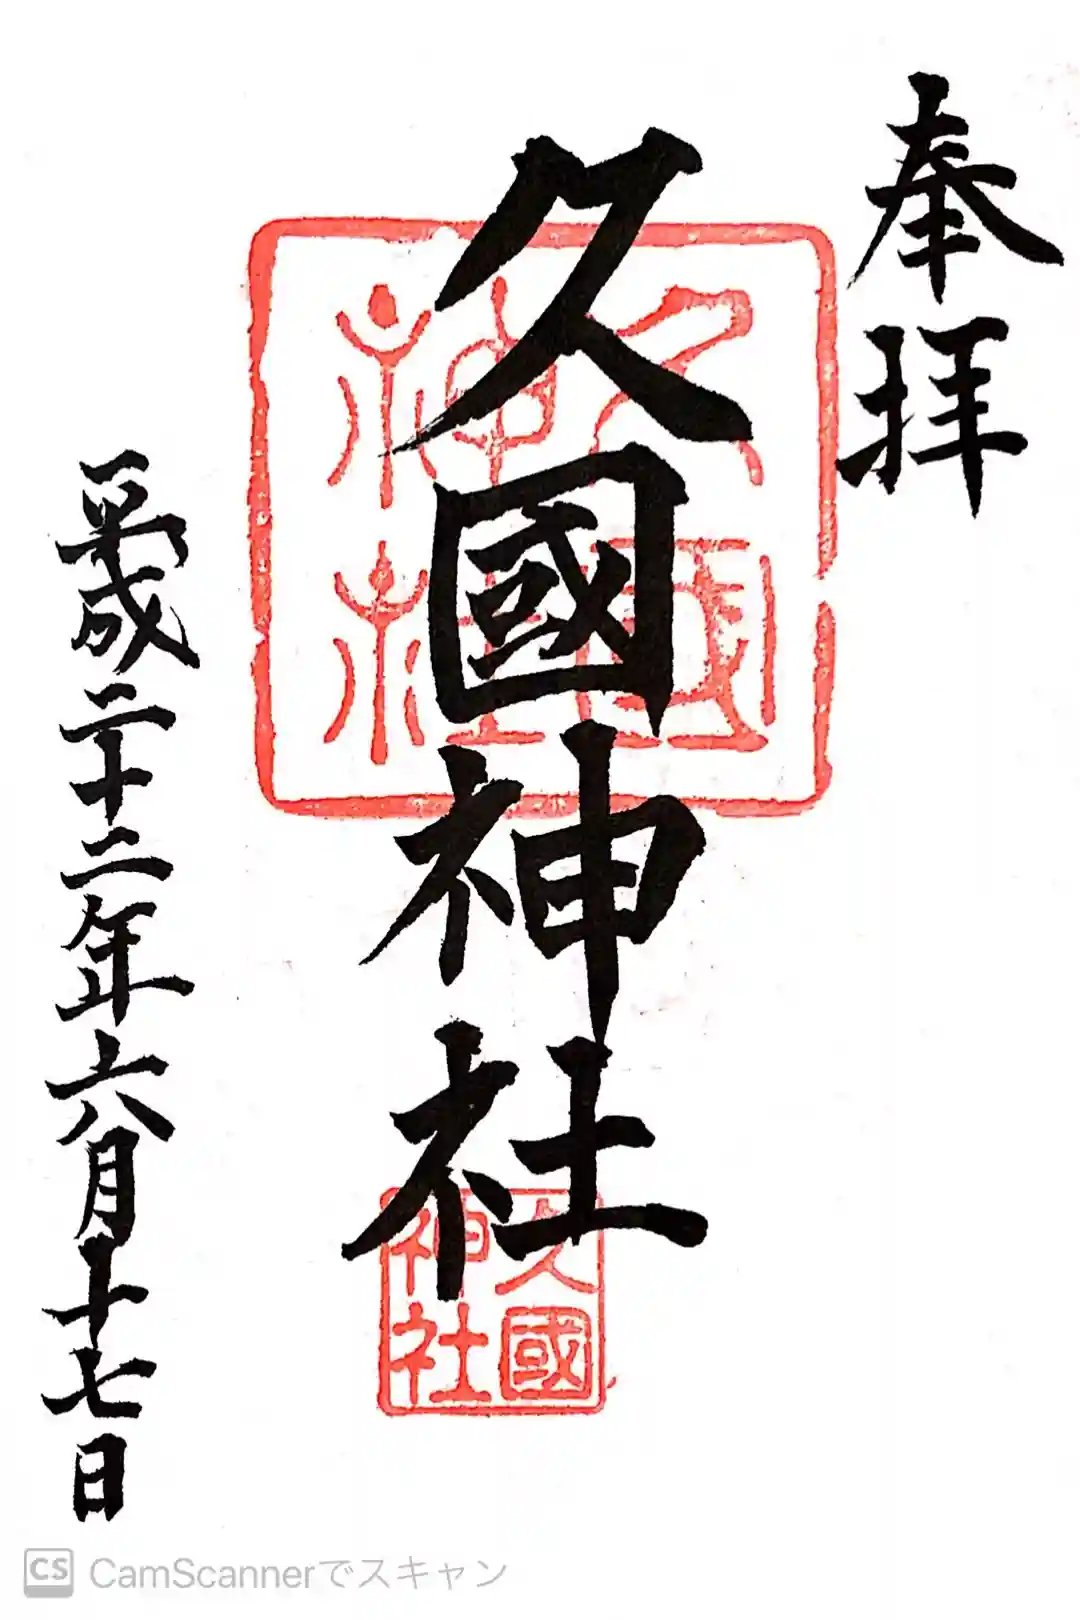 奉拝
久國神社
久國
神社
久國
神社
平成二十二年六月十七日
CS CamScannerでスキャン